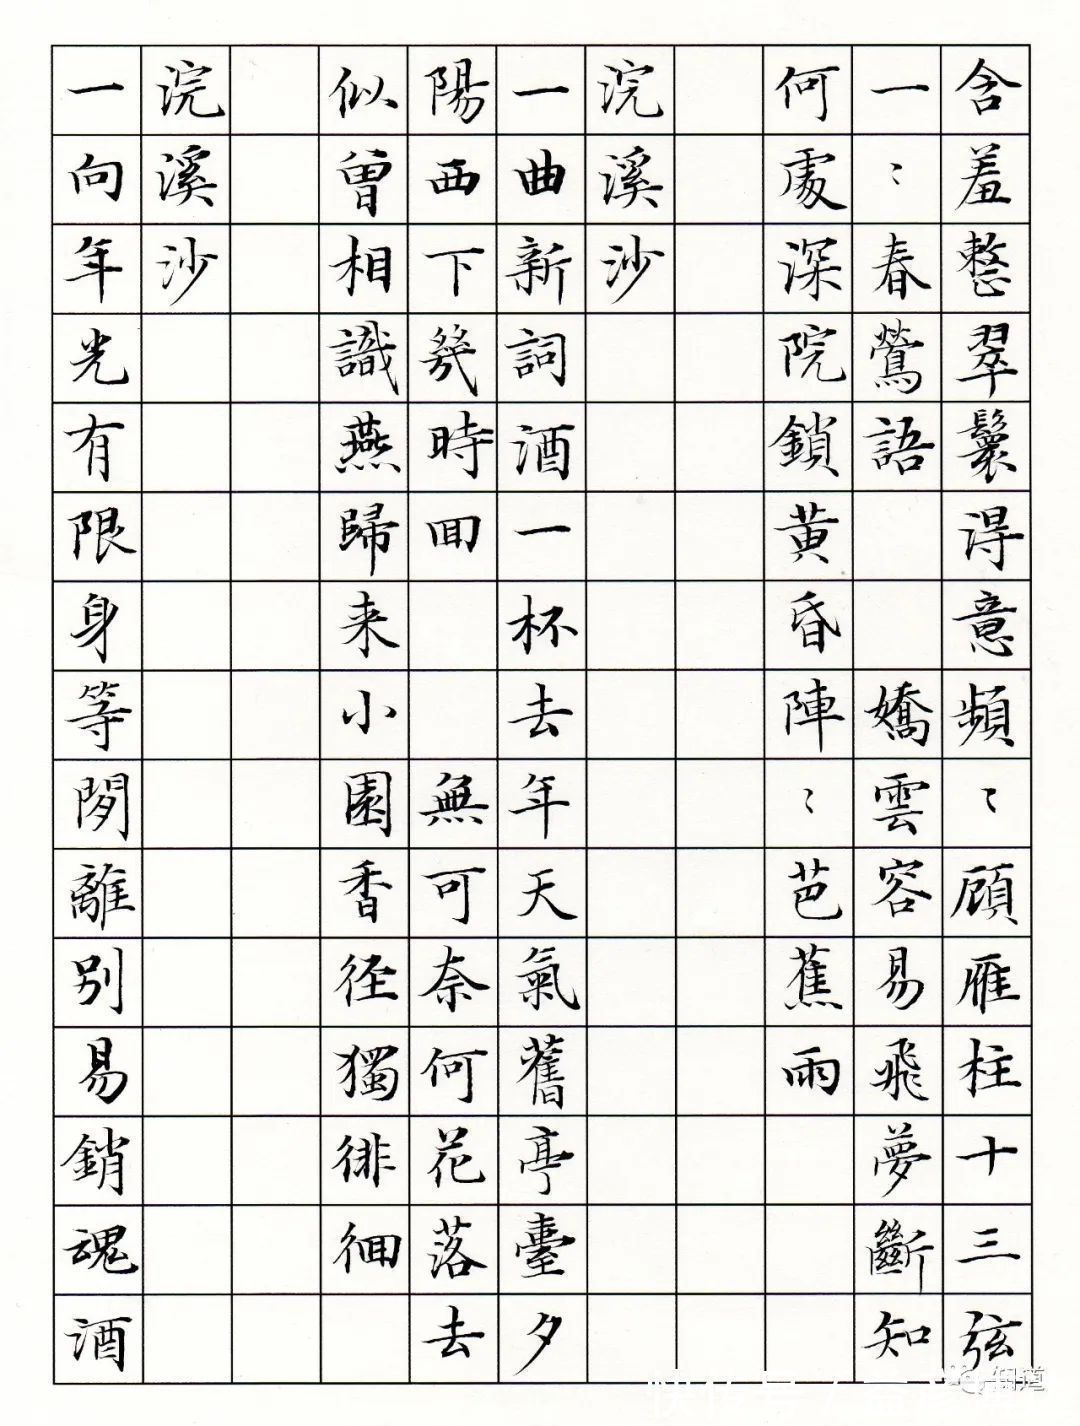 含羞整翠鬟得意頻〻顧雁柱十三弦
一〻春鶯語 嬌雲容易飛夢斷知
何處深院鎖黃昏陣〻芭蕉雨
浣溪沙
一曲新詞酒一杯去年天氣舊亭臺夕
陽西下幾時回 無可奈何花落去
似曾相識燕歸来小園香徑獨徘徊
浣溪沙
一向年光有限身等閒離別易銷魂酒